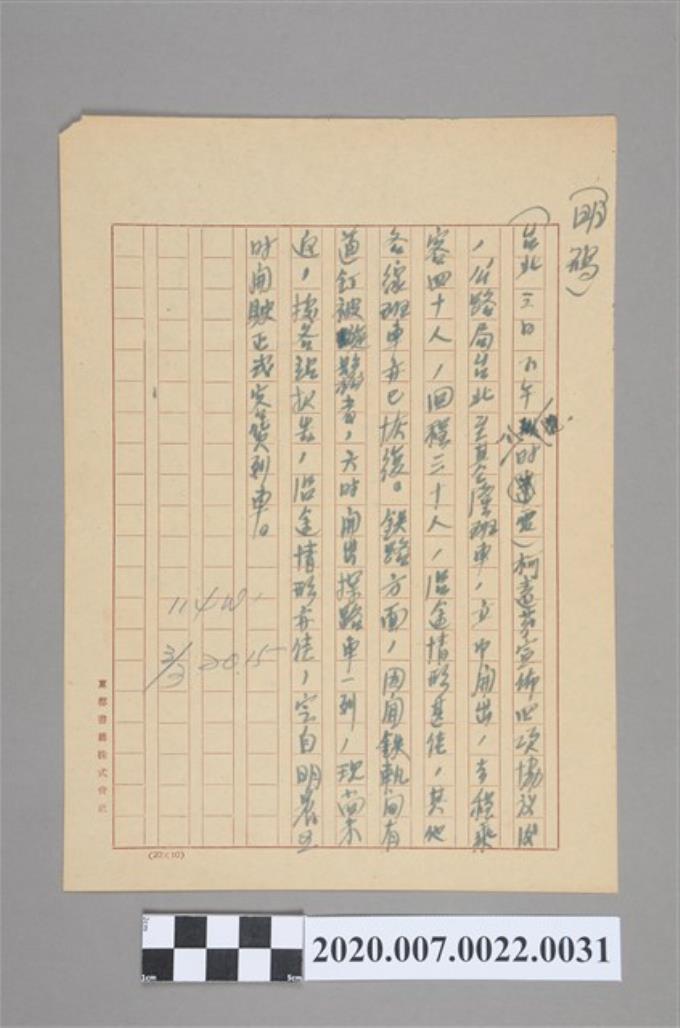 (明碼)
(台北三日下午八時電)柯遠芬宣佈四項協議後
,公路局台北至基隆班車,方中開出,去程乘
客四十人,回程三十人,沿途情形甚佳,其他
各線班車亦已恢復。鉄路方面,因間鉄軌間有
道釘被毀者,六時開出探路車一列,現尚未
返,據各站報告,沿途情形亦佳,定自明晨五
時開駛正式客貨列車。
114W.
3/3 20.15
東都書籍株式會社
(20×10)
2cm
1cm
5cm
2020.007.0022.0031